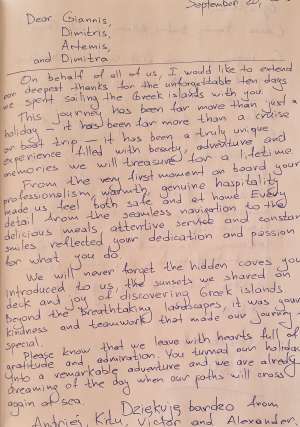 September 20,
Dear Giannis,
Dimitris,
Artemis,
and Dimitra
On behalf of all of us, I would like to extend
our deepest thanks for the unforgettable ten days
we spent sailing the Greek islands with you.
This journey has been far more than just a
holiday - it has been far more than a cruise
or boat trip - it has been a truly unique
experience filled with beauty, adventure and
memories we will treasure for a lifetime
From the very first moment on board your
professionalism, warmth, genuine hospitality
made us feel both safe and at home. Every
detail from the seamless navigation to the
delicious meals, attentive service and constant
smiles reflected your dedication and passion
for what you do.
We will never forget the hidden coves you
introduced to us, the sunsets we shared on
deck and joy of discovering Greek islands
Beyond the breathtaking landscapes, it was your
kindness and teamwork that made our journey so
special.
Please know that we leave with hearts full of
gratitude and admiration. You turned our holiday
into a remarkable adventure and we are already
dreaming of the day when our paths will cross
again at sea.
Dziękuję bardzo from
Andrzej, Victor and Alexander,